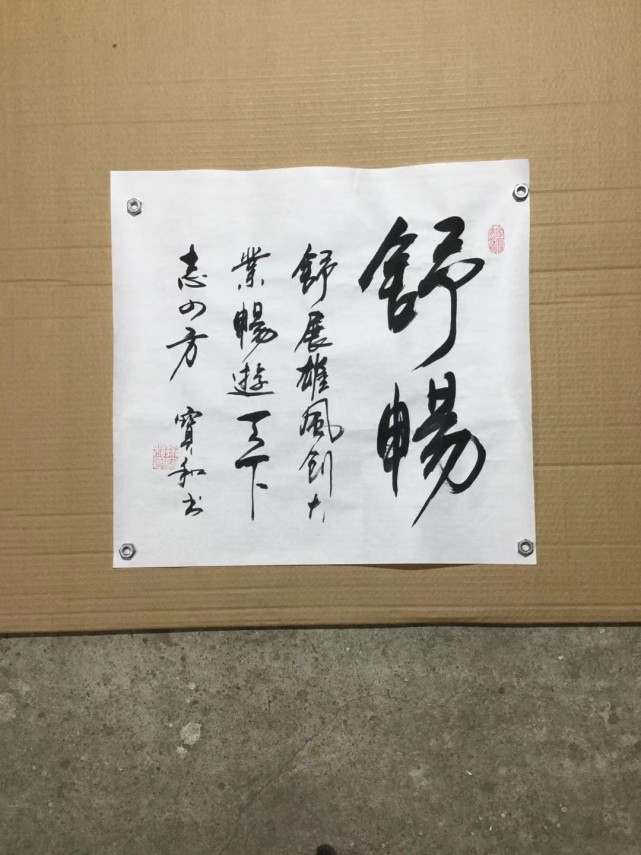 舒暢
舒展雄風創大
業暢遊天下
志四方
寶和书